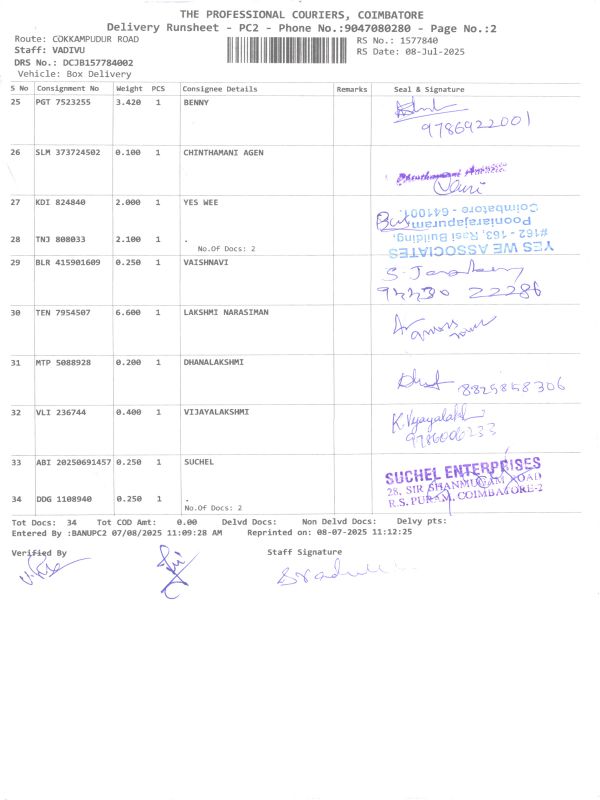 THE PROFESSIONAL COURIERS, COIMBATORE
Delivery Runsheet - PC2 - Phone No.:9047080280 - Page No.:2
Route: COKKAMPUDUR ROAD
RS No.: 1577840
Staff: VADIVU
RS Date: 08-Jul-2025
DRS No.: DCJB157784002
Vehicle: Box Delivery
S No Consignment No Weight PCS Consignee Details Remarks Seal & Signature
25 PGT 7523255 3.420 1 BENNY
9786922001
26 SLM 373724502 0.100 1 CHINTHAMANI AGEN
27 KDI 824840 2.000 1 YES WEE
28 TNJ 808033 2.100 1 .
No.Of Docs: 2
YES WE ASSOCIATES
#162 - 163, Rasi Building,
Pooniarajapuram
Coimbatore - 641001.
29 BLR 415901609 0.250 1 VAISHNAVI
30 TEN 7954507 6.600 1 LAKSHMI NARASIMAN
31 MTP 5088928 0.200 1 DHANALAKSHMI
8825858306
32 VLI 236744 0.400 1 VIJAYALAKSHMI
K. Vijayalakshmi
9786006233
33 ABI 20250691457 0.250 1 SUCHEL
34 DDG 1108940 0.250 1 .
No.Of Docs: 2
SUCHEL ENTERPRISES
28, SIR SHANMUGAM ROAD
R.S. PURAM, COIMBATORE-2
Tot Docs: 34 Tot COD Amt: 0.00 Delvd Docs: Non Delvd Docs: Delvy pts:
Entered By :BANUPC2 07/08/2025 11:09:28 AM Reprinted on: 08-07-2025 11:12:25
Verified By
Staff Signature